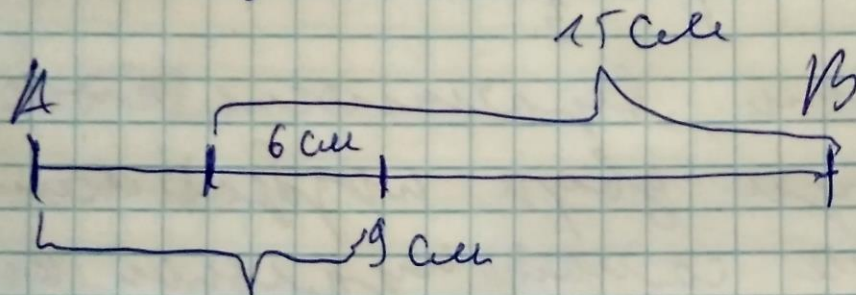 15 см
А В
6 см
9 см